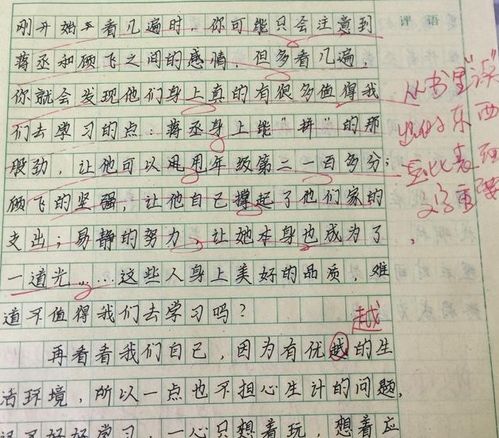 评语
刚开始去看几遍时，你可能只会注意到
蒋丞和顾飞之间的感情，但多看几遍，
你就会发现他们身上真的有很多值得我
们去学习的点：蒋丞身上能"拼"的那
股劲，让他可以甩甩年级第二一百多分；
顾飞的坚强，让他自己撑起了他们家的
支出；易静的努力，让她本身也成为了
一道光……这些人身上美好的品质，难
道不值得我们去学习吗？
越
再看看我们自己，因为有优越的生
活环境，所以一点也不担心生计的问题，
不好好学习，一心只想着玩，想着应
从书里"读"
出的东西
重要